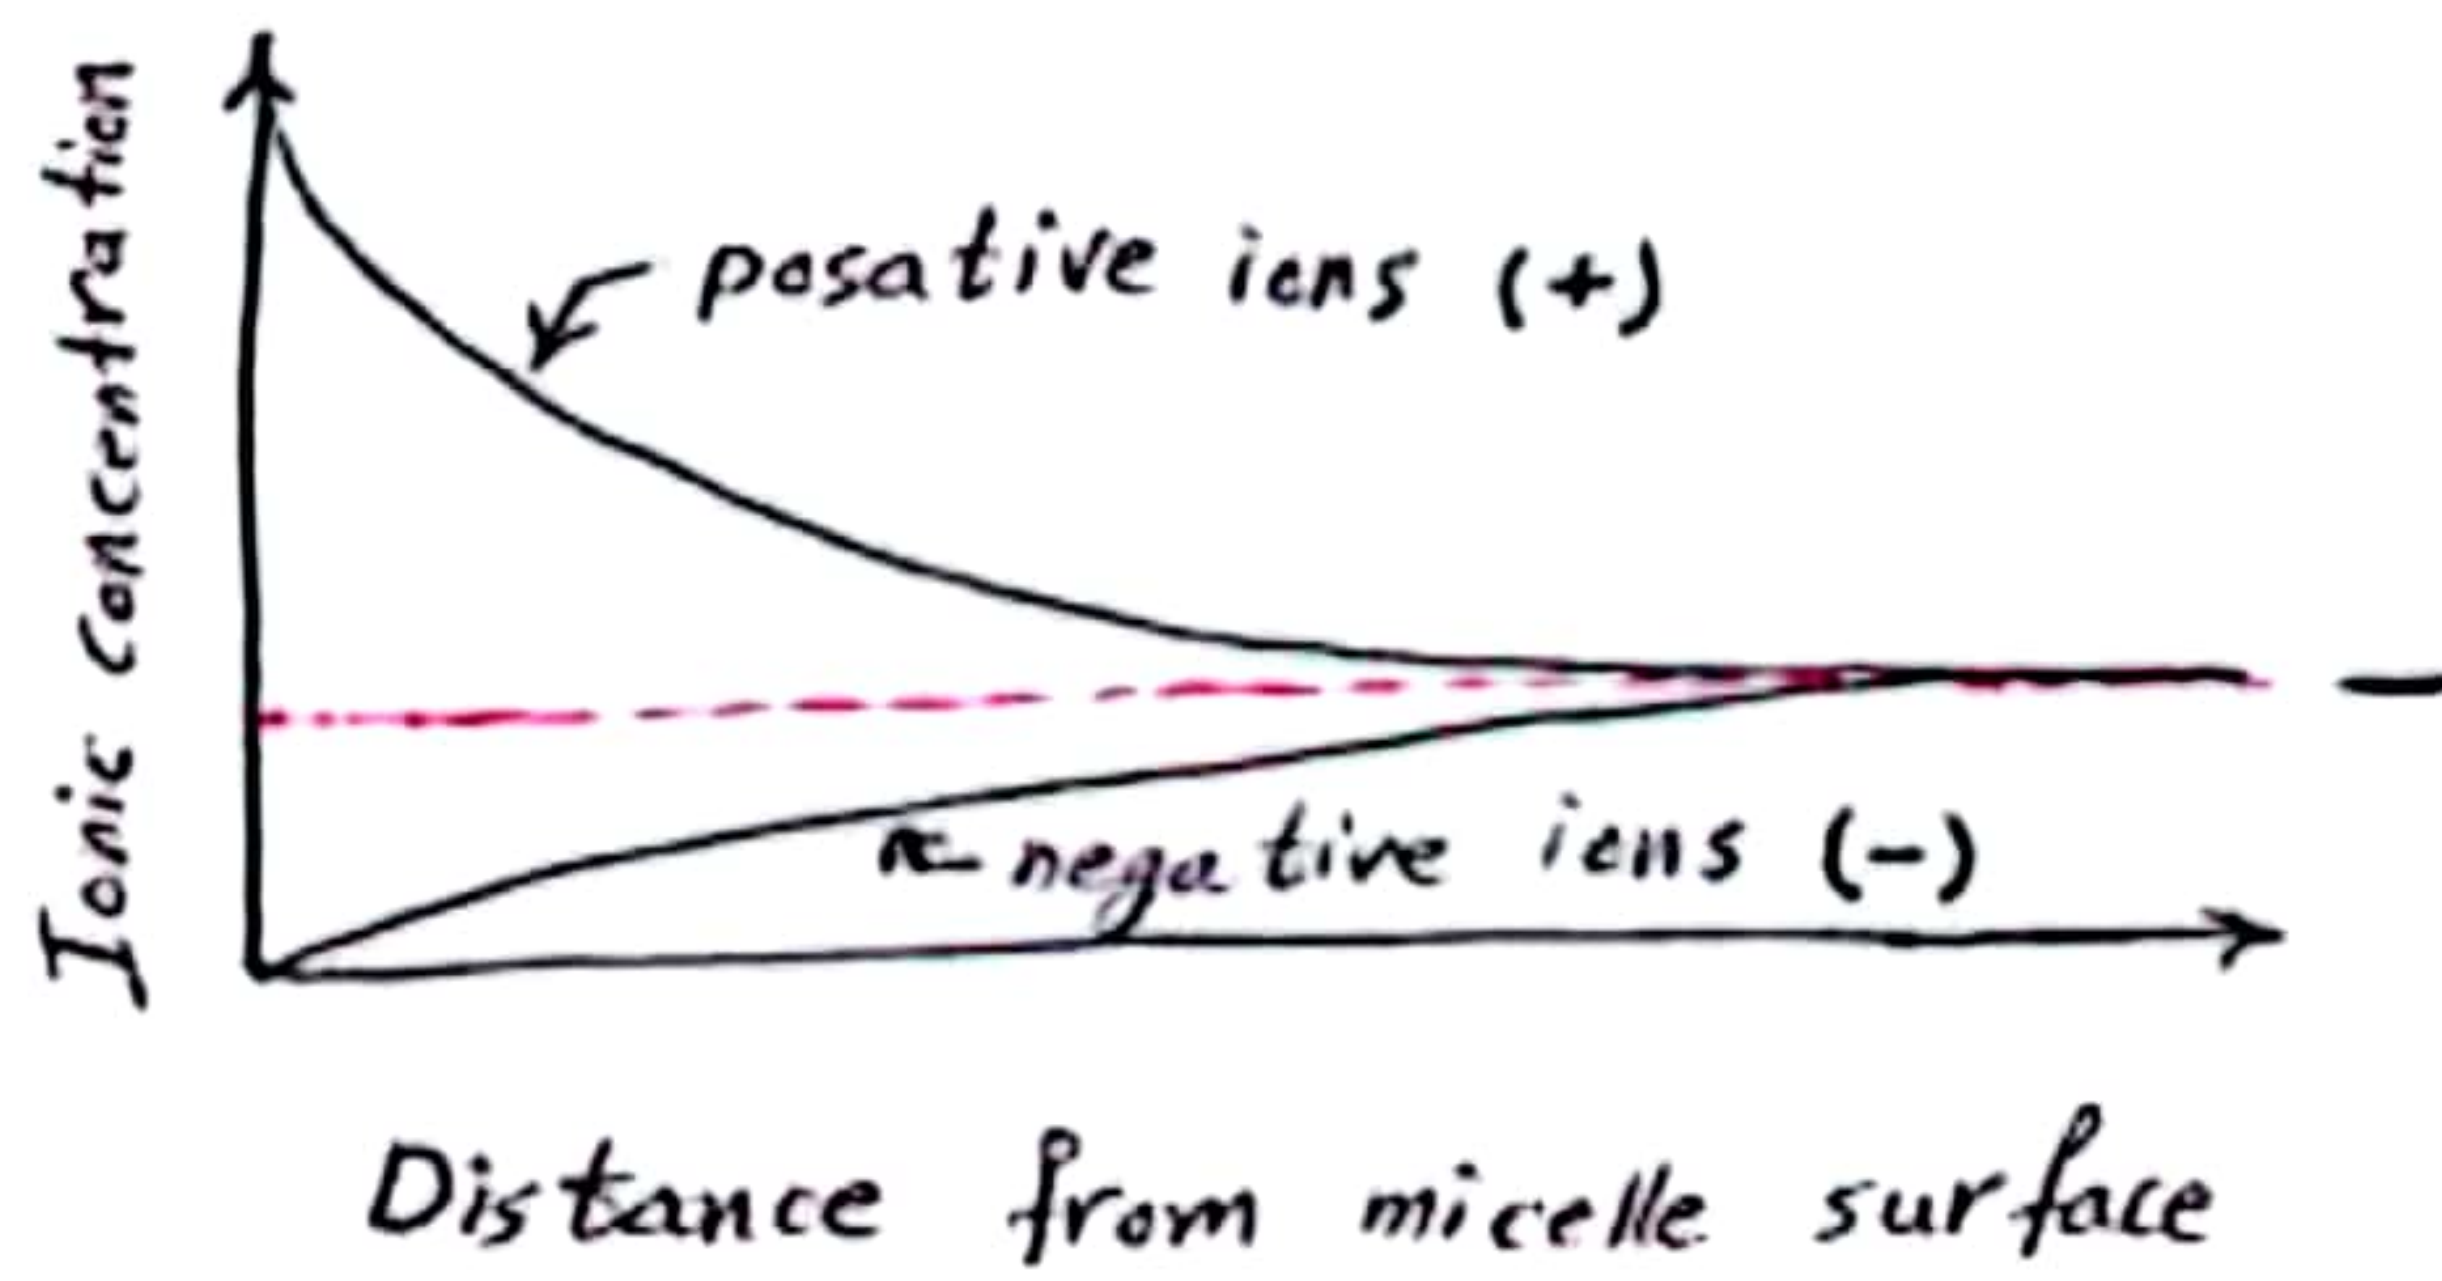 Ionic concentration
posative ions (+)
negative ions (-)
Distance from micelle surface